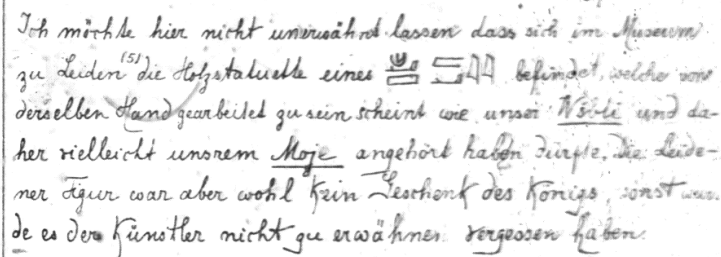 Ich möchte hier nicht unerwähnt lassen dass sich im Museum
zu Leiden (5) die Holzstatuette eines befindet, welche von
derselben Hand gearbeitet zu sein scheint wie unser und da-
her vielleicht unsrem Moje angehört haben dürfte. Die Leide-
ner Figur war aber wohl kein Geschenk des Königs, sonst wür-
de es der Künstler nicht zu erwähnen vergessen haben.